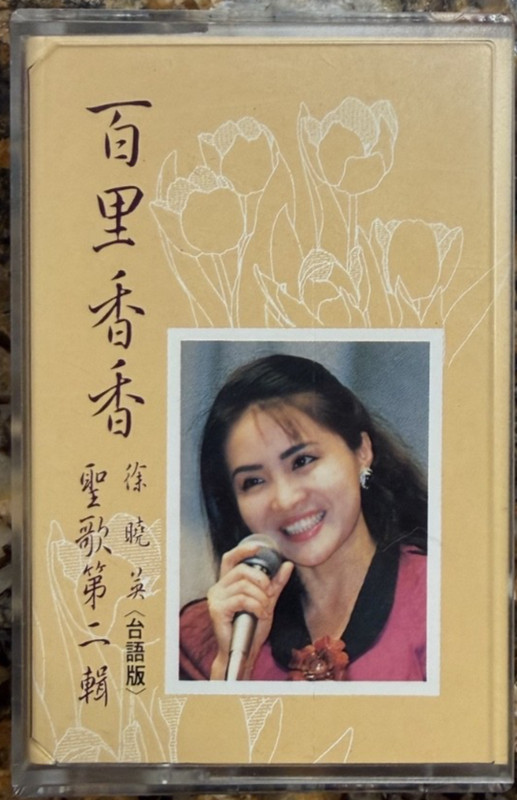 百里香香
徐曉英〈台語版〉
聖歌第二輯